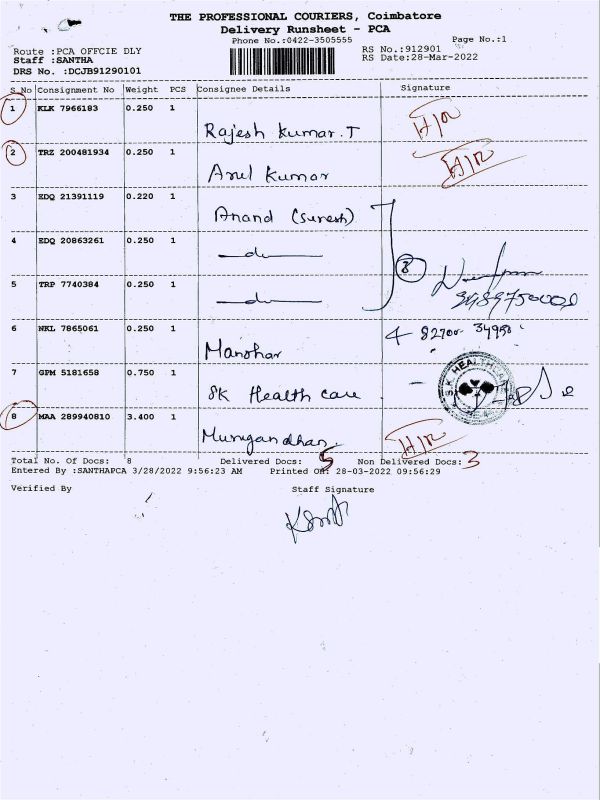 THE PROFESSIONAL COURIERS, Coimbatore
Delivery Runsheet - PCA
Phone No.:0422-3505555 Page No.:1
Route :PCA OFFCIE DLY RS No.:912901
Staff :SANTHA RS Date:28-Mar-2022
DRS No. :DCJB91290101
S.No Consignment No Weight PCS Consignee Details Signature
1 KLK 7966183 0.250 1
Rajesh Kumar.T
2 TRZ 200481934 0.250 1
Arul Kumar
3 EDQ 21391119 0.220 1
Anand (Suresh)
4 EDQ 20863261 0.250 1
do
8
5 TRP 7740384 0.250 1
do
6 NKL 7865061 0.250 1
Manohar
7 GPM 5181658 0.750 1
SK HEALTH
SK Health care
8 MAA 289940810 3.400 1
Murugan dhan
Total No. Of Docs: 8 Delivered Docs: 5 Non Delivered Docs: 3
Entered By :SANTHAPCA 3/28/2022 9:56:23 AM Printed On: 28-03-2022 09:56:29
Verified By Staff Signature